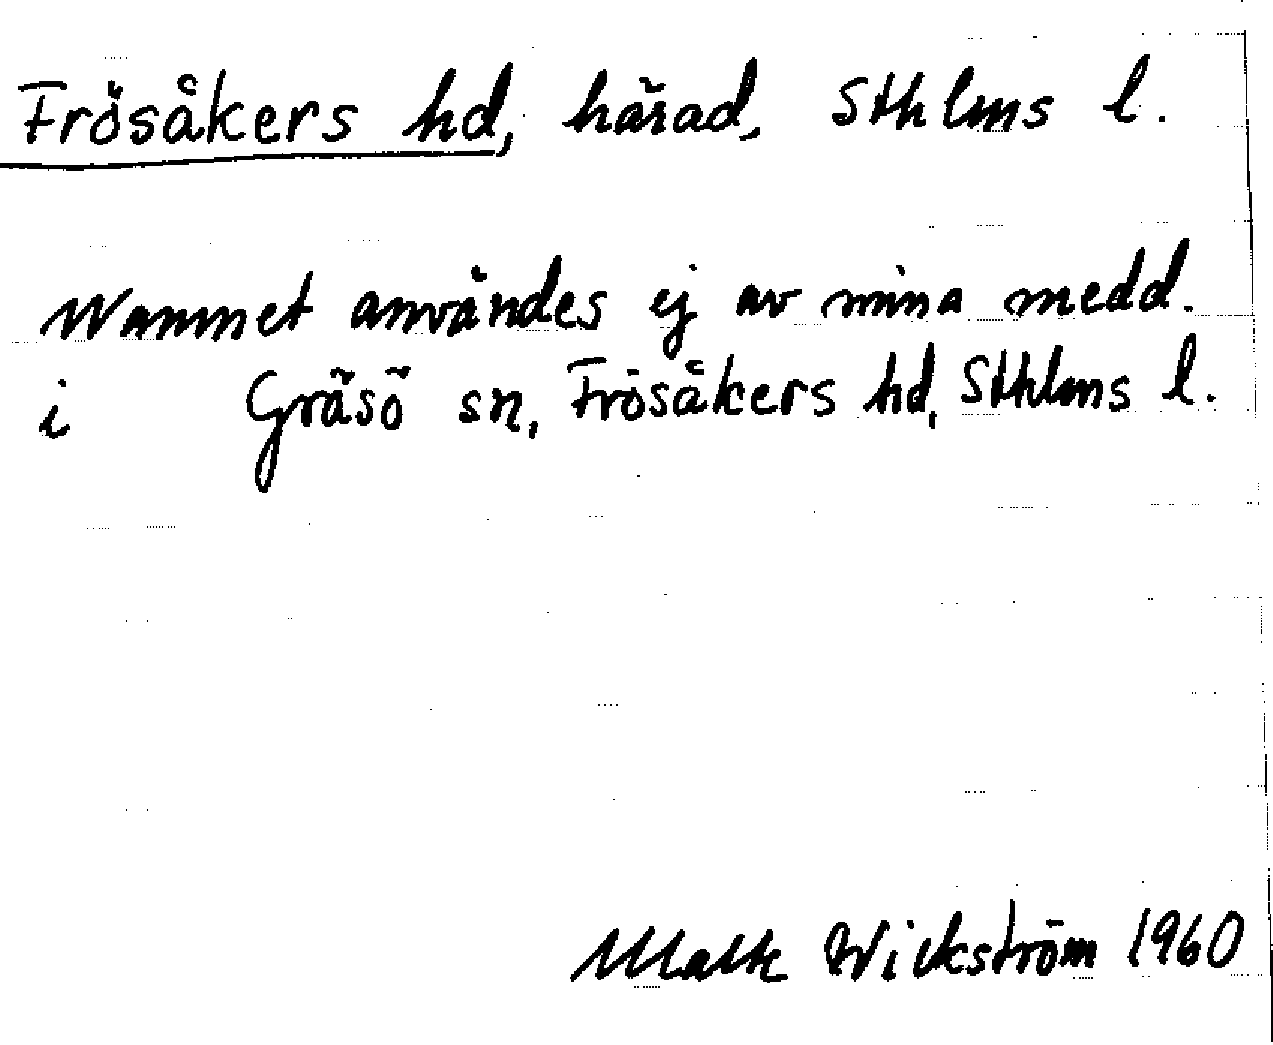 Frösåkers hd, härad, Sthlms l.
Namnet användes ej av mina medd.
i Gräsö sn, Frösåkers hd, Sthlms l.
Malte Wickström 1960